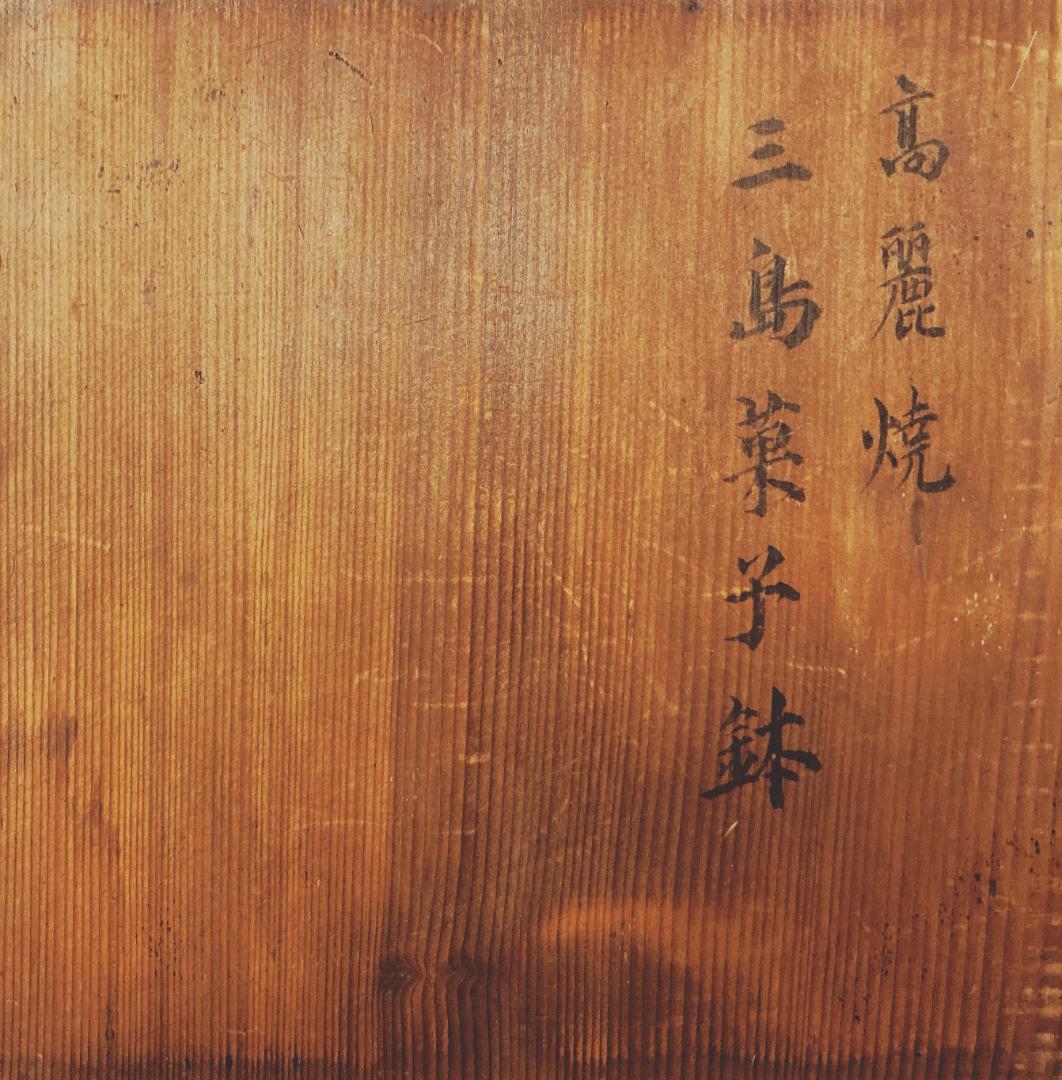 高麗焼
三島菓子鉢